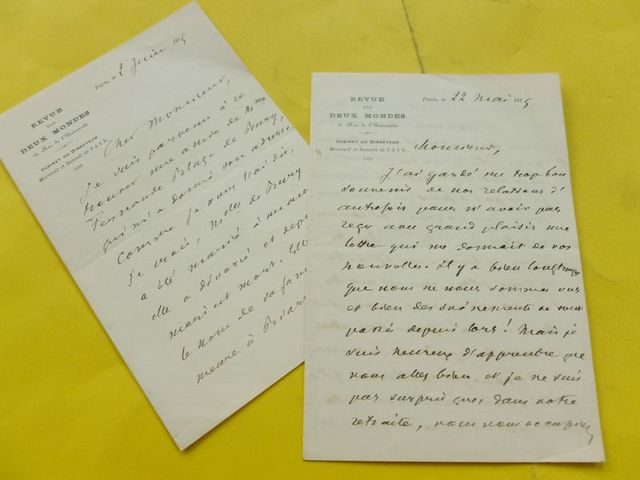 REVUE
DES
DEUX MONDES
15, Rue de l'Université
CABINET DU DIRECTEUR
Mercredi et Samedi de 2 à 4 h.
Paris, le 2 Juin
Cher Monsieur,
Je suis parvenu à re
trouver une amie de Mme
Fernande de
qui m'a donné son adresse.
Comme je vous l'ai dit,
je crois, Melle de
a été mariée à
elle a divorcé et
mari est mort. Elle
le nom de sa fam
meure à
REVUE
DES
DEUX MONDES
15, Rue de l'Université
CABINET DU DIRECTEUR
Mercredi et Samedi de 2 à 4 h.
Paris, le 22 mai
Monsieur,
J'ai gardé un trop bon
souvenir de nos relations d'
autrefois pour n'avoir pas
reçu avec grand plaisir une
lettre qui me donnait de vos
nouvelles. Il y a bien longtemps
que nous ne nous sommes vus
et bien des événements se sont
passé depuis lors ! Mais je
suis heureux d'apprendre que
vous allez bien et je ne suis
pas surpris que, dans votre
retraite, vous vous occupiez